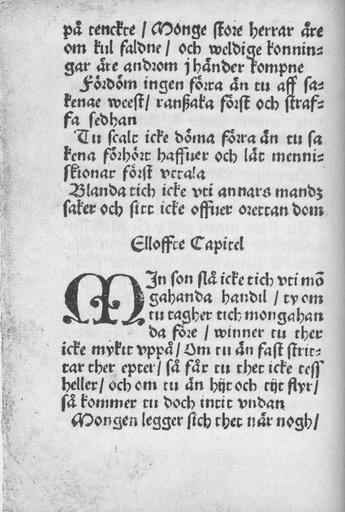 på tenckte / Monge store herrar äre
om kul faldne / och weldige konnin-
gar äre androm j händer kompne
Fördöm ingen förra än tu aff sa-
kenae weest / ranszaka först och straf-
fa sedhan
Tu scalt icke döma förra än tu sa
kena förhört haffuer och lät menni-
skionar först vttala
Blanda tich icke vti annars mandz
saker och sitt icke offuer orettan dom
Elloffte Capitel
MIn son slå icke tich vti mō
gahanda handil / ty om
tu tagher tich mongahan
da före / winner tu ther
icke mykit vppå / Om tu än fast strit-
tar ther epter / så får tu thet icke tess
heller / och om tu än hijt och tijt flyr /
så kommer tu doch intit vndan
Mongen legger sich thet när nogh /